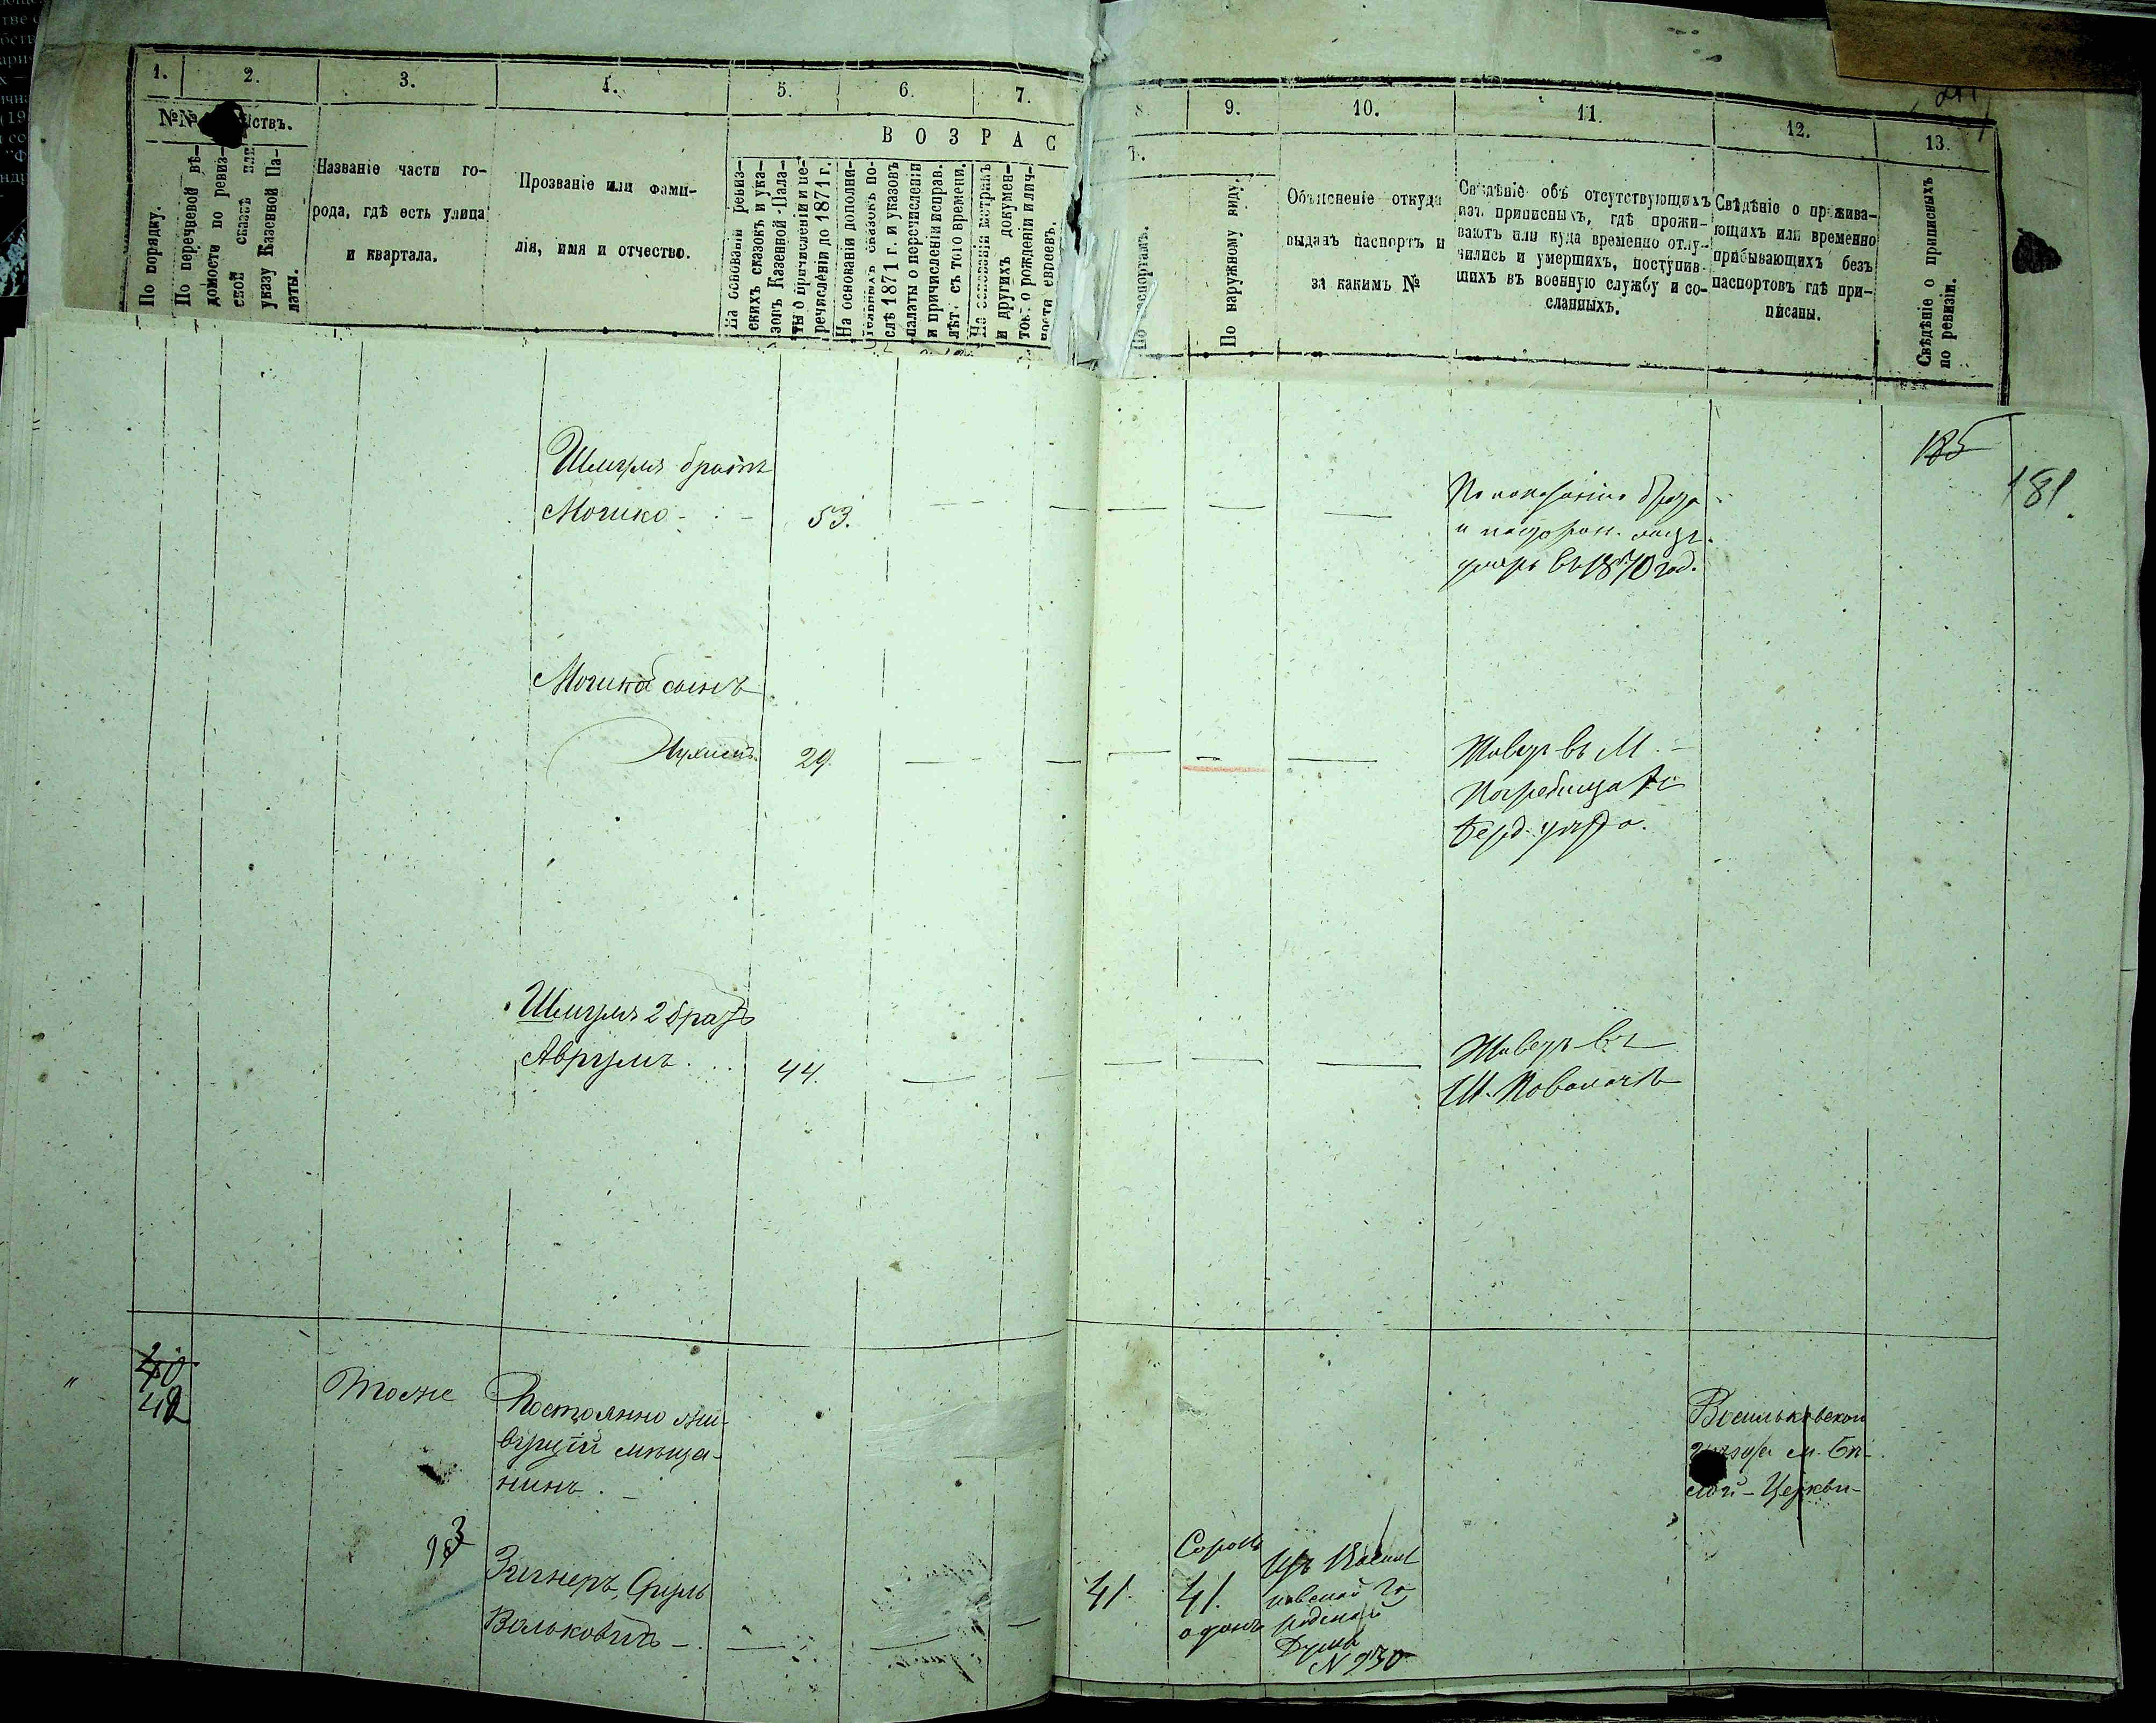 1. 2. 3. 4. 5. 6. 7. 8. 9. 10. 11. 12. 13.
По порядку.
По перечневой вѣ-
домости по ревиз-
ской сказкѣ или
указу Казенной Па-
латы.
Названіе части го-
рода, гдѣ есть улица
и квартала.
Прозваніе или фами-
лія, имя и отчество.
ВОЗРАС
Т.
На основаніи ревиз-
скихъ сказокъ и ука-
зовъ Казенной Пала-
ты о причисленіи и пе-
речисленіи до 1871 г.
На основаніи дополни-
тельныхъ сказокъ по-
слѣ 1871 г. и указовъ
палаты о перечисленіи
и причисленіи исправ.
лѣт. съ того времени.
На основаніи метрикъ
и другихъ докумен-
тов. о рожденіи и лич-
ности евреевъ.
По паспортамъ.
По наружному виду.
Объясненіе откуда
выданъ паспортъ и
за какимъ №
Свѣдѣніе объ отсутствующихъ
изъ приписныхъ, гдѣ прожи-
ваютъ или куда временно отлу-
чились и умершихъ, поступив-
шихъ въ военную службу и со-
сланныхъ.
Свѣдѣніе о прожива-
ющихъ или временно
прибывающихъ безъ
паспортовъ гдѣ при-
писаны.
Свѣдѣніе о приписныхъ
по ревизіи.
185
181.
Шмуля братъ
Мошко - 53.
умеръ въ 1870 год.
Мошка сынъ
Нухимъ. 29.
Живетъ въ М.
Погребища
Берд. уѣзда.
Шмуля 2 братъ
Аврумъ. 44.
Живетъ въ
М. Паволочь
40
42
Тоже
Постоянно жи-
вущій мѣща-
нинъ.
93
Зигнеръ, Сруль
Вольковичъ -
41.
Сорокъ
41.
одинъ
Изъ Василь
ковской Го
родской
Думы
N 930
Васильковскаго
уѣзда м. Бѣ-
лой-Церкви-